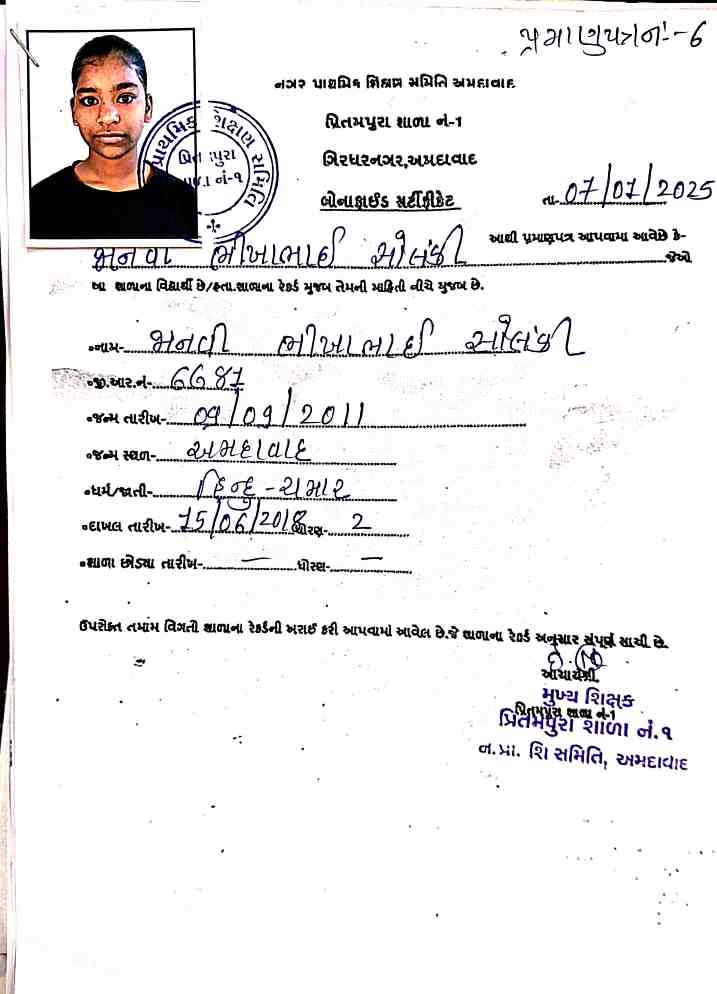 પ્રમાણપત્ર નં:-6
નગર પ્રાથમિક શિક્ષણ સમિતિ અમદાવાદ
પ્રિતમપુરા શાળા નં-1
ગિરધરનગર,અમદાવાદ
બોનાફાઈડ સર્ટીફીકેટ
તા.-07/07/2025
પ્રાથમિક શિક્ષણ સમિતિ
આથી પ્રમાણપત્ર આપવામા આવેછે કે-
ભીખાભાઈ સોલંકી જેઓ
આ શાળાના વિદ્યાર્થી છે/હતા.શાળાના રેકર્ડ મુજબ તેમની માહિતી નીચે મુજબ છે.
•નામ- ભીખાભાઈ સોલંકી
•જી.આર.નં- 6687
•જન્મ તારીખ- 09/09/2011
•જન્મ સ્થળ- અમદાવાદ
•ધર્મ/જાતી- હિન્દુ - ચમાર
•દાખલ તારીખ- 15/06/2018 ધોરણ- 2
•શાળા છોડ્યા તારીખ- — ધોરણ- —
ઉપરોક્ત તમામ વિગતો શાળાના રેકર્ડની ખરાઈ કરી આપવામાં આવેલ છે.જે શાળાના રેકર્ડ અનુસાર સંપૂર્ણ સાચી છે.
આચાર્યશ્રી,
મુખ્ય શિક્ષક
પ્રિતમપુરા શાળા નં-1
પ્રિતમપુરા શાળા નં.૧
ન.પ્રા. શિ સમિતિ, અમદાવાદ